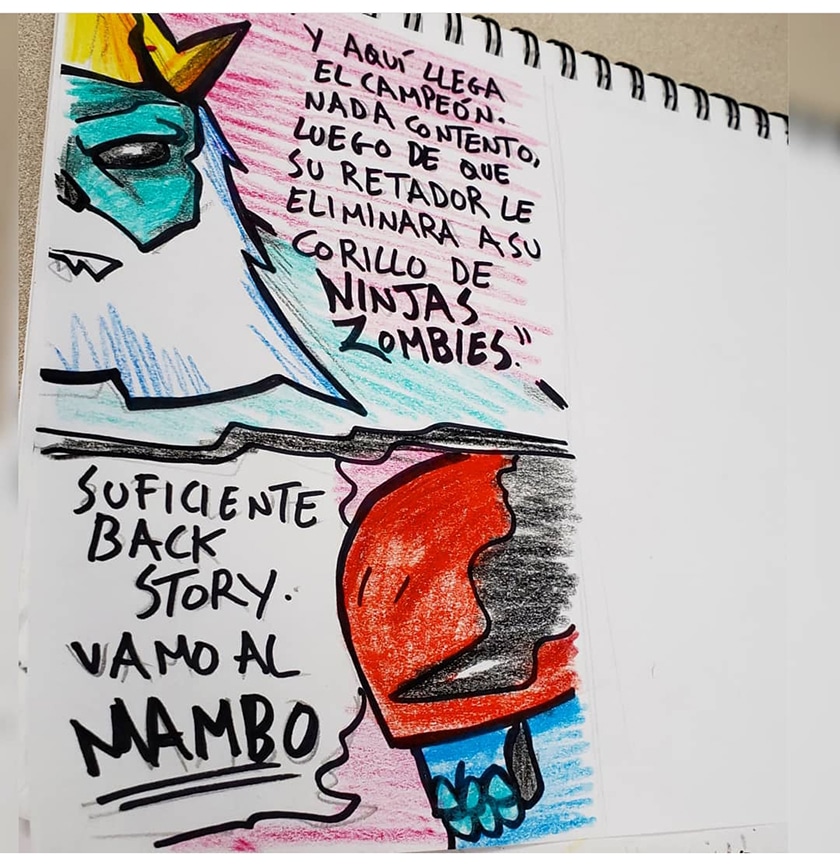 Y AQUÍ LLEGA
EL CAMPEÓN.
NADA CONTENTO,
LUEGO DE QUE
SU RETADOR LE
ELIMINARA A SU
CORILLO DE
NINJAS
ZOMBIES."
SUFICIENTE
BACK
STORY.
VAMO AL
MAMBO